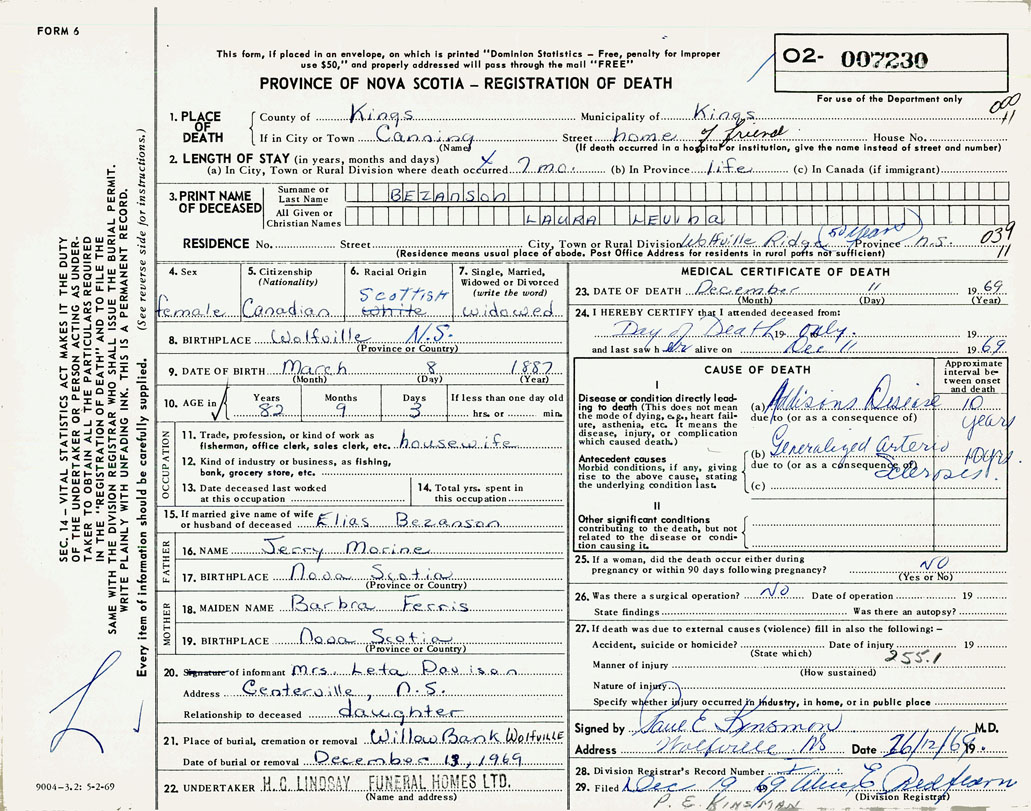 FORM 6
This form, if placed in an envelope, on which is printed "Dominion Statistics – Free, penalty for improper
use $50," and properly addressed will pass through the mail "FREE"
O2- 007230
PROVINCE OF NOVA SCOTIA – REGISTRATION OF DEATH
For use of the Department only
000
11
1. PLACE OF DEATH
County of Kings Municipality of Kings
If in City or Town Canning Street home of friend House No.
(Name) (If death occurred in a hospital or institution, give the name instead of street and number)
2. LENGTH OF STAY (in years, months and days)
(a) In City, Town or Rural Division where death occurred 7 mo. (b) In Province life (c) In Canada (if immigrant)
3. PRINT NAME OF DECEASED
Surname or Last Name BEZANSON
All Given or Christian Names LAURA LEVINA
RESIDENCE No. Street City, Town or Rural Division Wolfville Ridge (50 years) Province N.S. 039
11
(Residence means usual place of abode. Post Office Address for residents in rural parts not sufficient)
4. Sex
female
5. Citizenship
(Nationality)
Canadian
6. Racial Origin
Scottish
White
7. Single, Married,
Widowed or Divorced
(write the word)
widowed
8. BIRTHPLACE Wolfville N.S.
(Province or Country)
9. DATE OF BIRTH March 8 1887
(Month) (Day) (Year)
10. AGE in Years Months Days If less than one day old
82 9 3 hrs. or min.
OCCUPATION
11. Trade, profession, or kind of work as
fisherman, office clerk, sales clerk, etc. housewife
12. Kind of industry or business, as fishing,
bank, grocery store, etc.
13. Date deceased last worked
at this occupation
14. Total yrs. spent in
this occupation
15. If married give name of wife
or husband of deceased Elias Bezanson
FATHER
16. NAME Jerry Morine
17. BIRTHPLACE Nova Scotia
(Province or Country)
MOTHER
18. MAIDEN NAME Barbra Ferris
19. BIRTHPLACE Nova Scotia
(Province or Country)
20. Signature of informant Mrs. Leta Davison
Address Centerville, N.S.
Relationship to deceased daughter
21. Place of burial, cremation or removal Willow Bank Wolfville
Date of burial or removal December 13, 1969
22. UNDERTAKER H. C. LINDSAY FUNERAL HOMES LTD.
(Name and address)
MEDICAL CERTIFICATE OF DEATH
23. DATE OF DEATH December 11 19 69
(Month) (Day) (Year)
24. I HEREBY CERTIFY that I attended deceased from:
Day of Death 19 only. 19
and last saw her alive on Dec 11 19 69
CAUSE OF DEATH
Approximate
interval be-
tween onset
and death
I
Disease or condition directly lead-
ing to death (This does not mean
the mode of dying, e.g., heart fail-
ure, asthenia, etc. It means the
disease, injury, or complication
which caused death.)
(a) Addisons Disease 10 years
due to (or as a consequence of)
Antecedent causes
Morbid conditions, if any, giving
rise to the above cause, stating
the underlying condition last.
(b) Generalized Arterio Sclerosis. 10 years.
due to (or as a consequence of)
(c)
II
Other significant conditions
contributing to the death, but not
related to the disease or condi-
tion causing it.
25. If a woman, did the death occur either during
pregnancy or within 90 days following pregnancy? NO
(Yes or No)
26. Was there a surgical operation? NO Date of operation 19
State findings Was there an autopsy?
27. If death was due to external causes (violence) fill in also the following: –
Accident, suicide or homicide? Date of injury 19
(State which)
255.1
Manner of injury
(How sustained)
Nature of injury
Specify whether injury occurred in Industry, in home, or in public place
Signed by Paul E Kinsman M.D.
Address Wolfville NS Date 26/12/69 19
28. Division Registrar's Record Number
29. Filed Dec 19 69
(Division Registrar)
P. E. KINSMAN
SEC. 14 – VITAL STATISTICS ACT MAKES IT THE DUTY
OF THE UNDERTAKER OR PERSON ACTING AS UNDER-
TAKER TO OBTAIN ALL THE PARTICULARS REQUIRED
IN THE "REGISTRATION OF DEATH" AND TO FILE THE
SAME WITH THE DIVISION REGISTRAR WHO SHALL ISSUE THE BURIAL PERMIT.
WRITE PLAINLY WITH UNFADING INK. THIS IS A PERMANENT RECORD.
Every item of information should be carefully supplied. (See reverse side for instructions.)
9004-3.2: 5-2-69